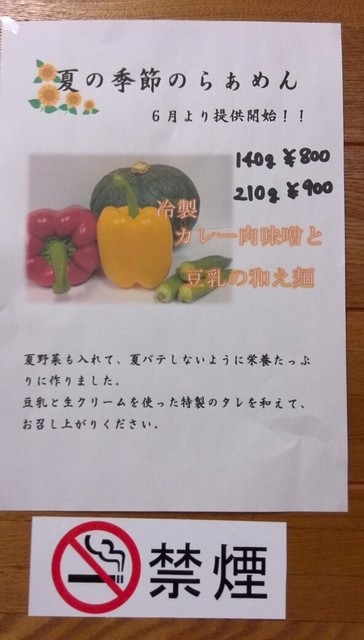 夏の季節のらぁめん
6月より提供開始！！
140g ¥800
210g ¥900
冷製
カレー肉味噌と
豆乳の和え麺
夏野菜も入れて、夏バテしないように栄養たっぷ
りに作りました。
豆乳と生クリームを使った特製のタレを和えて、
お召し上がりください。
禁煙